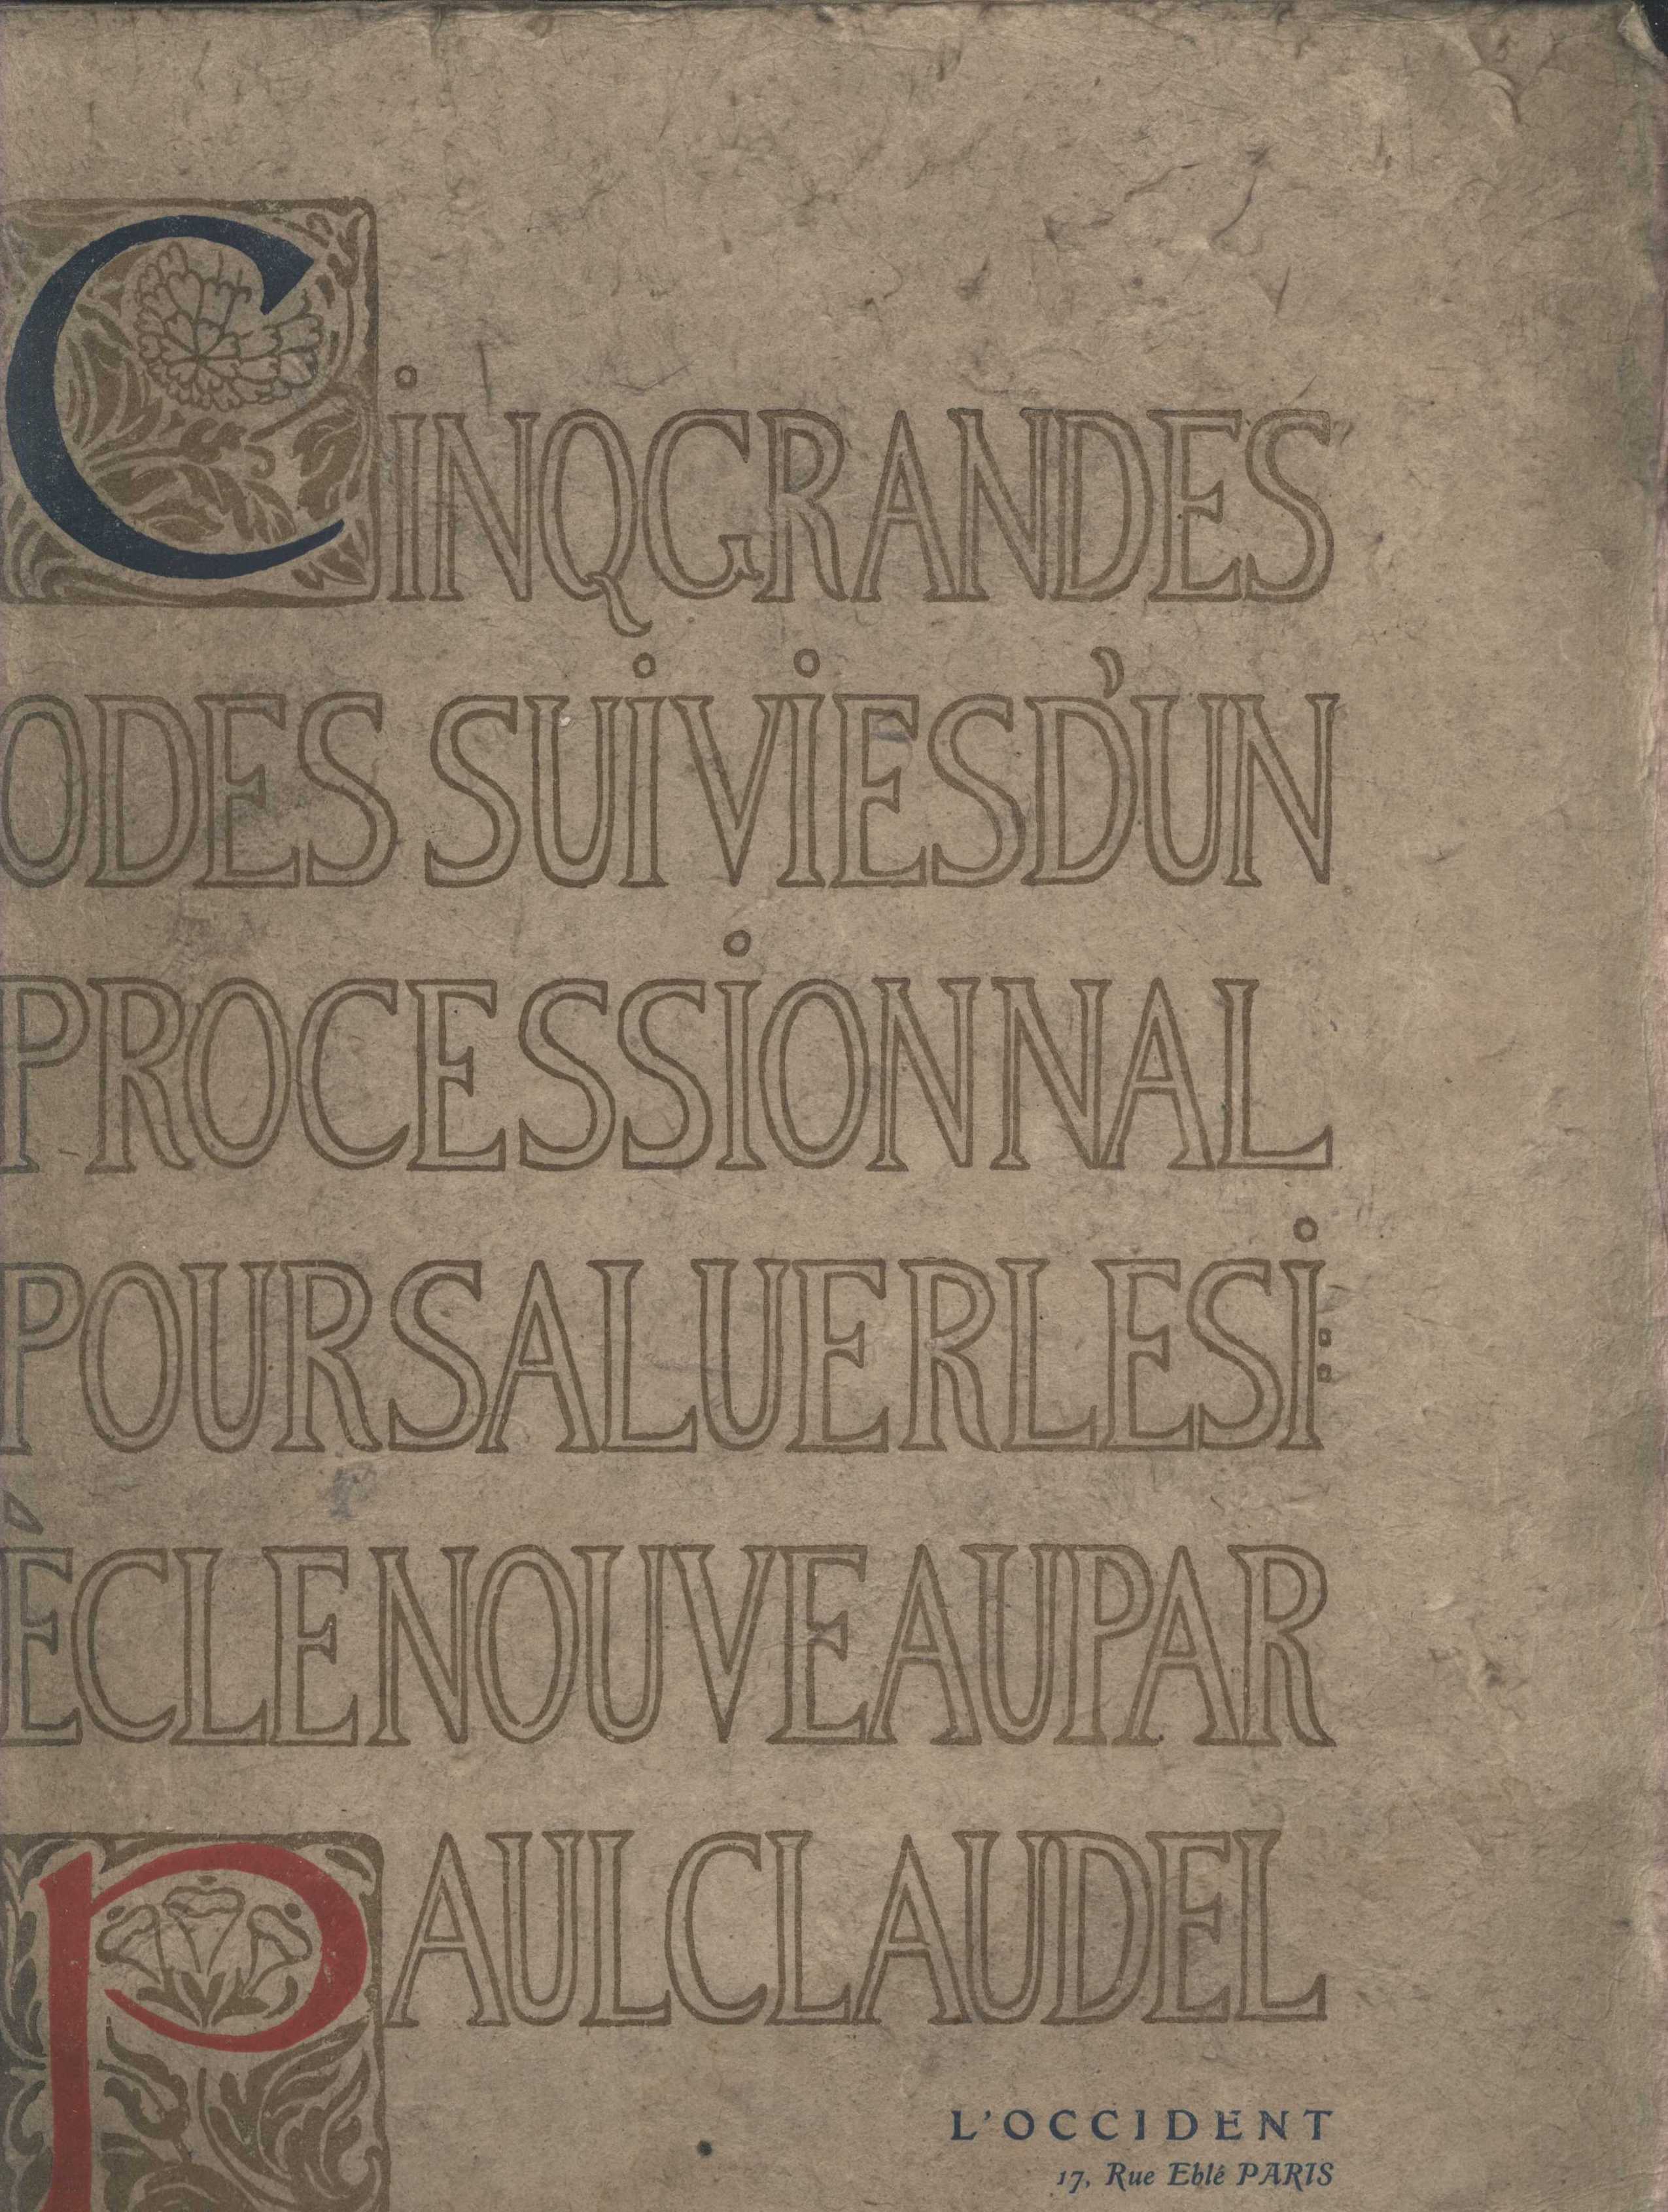 CİNQGRANDES
ODES SUİVİESD'UN
PROCESSİONNAL
POURSALUERLESİ:
ÈCLENOUVEAUPAR
PAULCLAUDEL
L'OCCIDENT
17, Rue Eblé PARIS